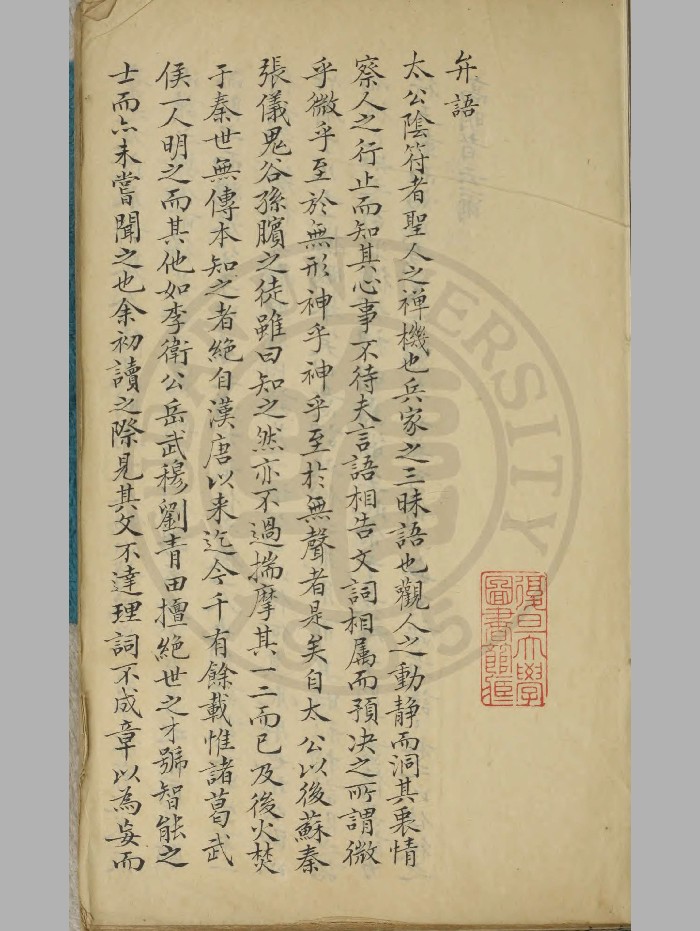 弁語
太公陰符者聖人之禅機也兵家之三昧語也觀人之動静而洞其衷情
察人之行止而知其心事不待夫言語相告文詞相属而預决之所謂微
乎微乎至於無形神乎神乎至於無聲者是矣自太公以後蘇秦
張儀鬼谷孫臏之徒雖曰知之然亦不過揣摩其一二而已及後火焚
于秦世無傳本知之者絶自漢唐以来迄今千有餘載惟諸葛武
侯一人明之而其他如李衛公岳武穆劉青田擅絶世之才號智能之
士而亦未嘗聞之也余初讀之際見其文不達理詞不成章以為妄而
復旦大學
圖書館藏